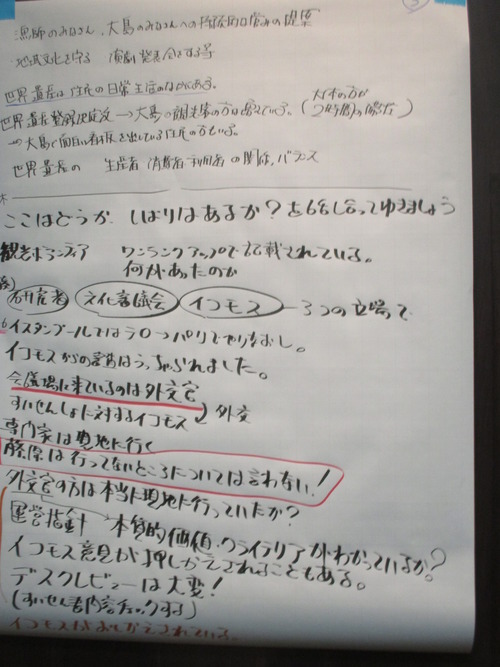 漁師のみなさん、大島のみなさんへの
地域文化を守る 演劇発表会をする等
世界遺産は住民の日常生活のなかにある。
世界遺産登録決定後 → 大島の観光客の方は増えている。
→ 大島で面白い看板を出している住民の方もいる。
世界遺産の 生産者 消費者・利用者 の関係、バランス
ここはどうか、しばりはあるか？を話し合ってゆきましょう
観光ボランティア ワンランクアップで記載されている。
何があったのか
研究者 文化審議会 イコモス ー 3つの立場で
イスタンブールではヨーロッパでやりなおし。
イコモスからの
会議場に来ているのは外交官
すいせんしょに対するイコモス 外交
専門家は現地に行く
藤原は行ってないところについては言わない！
外交官の方は本当に現地に行っていたか？
運営指針 本質的価値・クライテリアがわかっているか？
イコモス意見が押しかえされることもある。
デスクレビューは大変！
(すいせん書内容チェックする)
イコモスはおしかえされている。